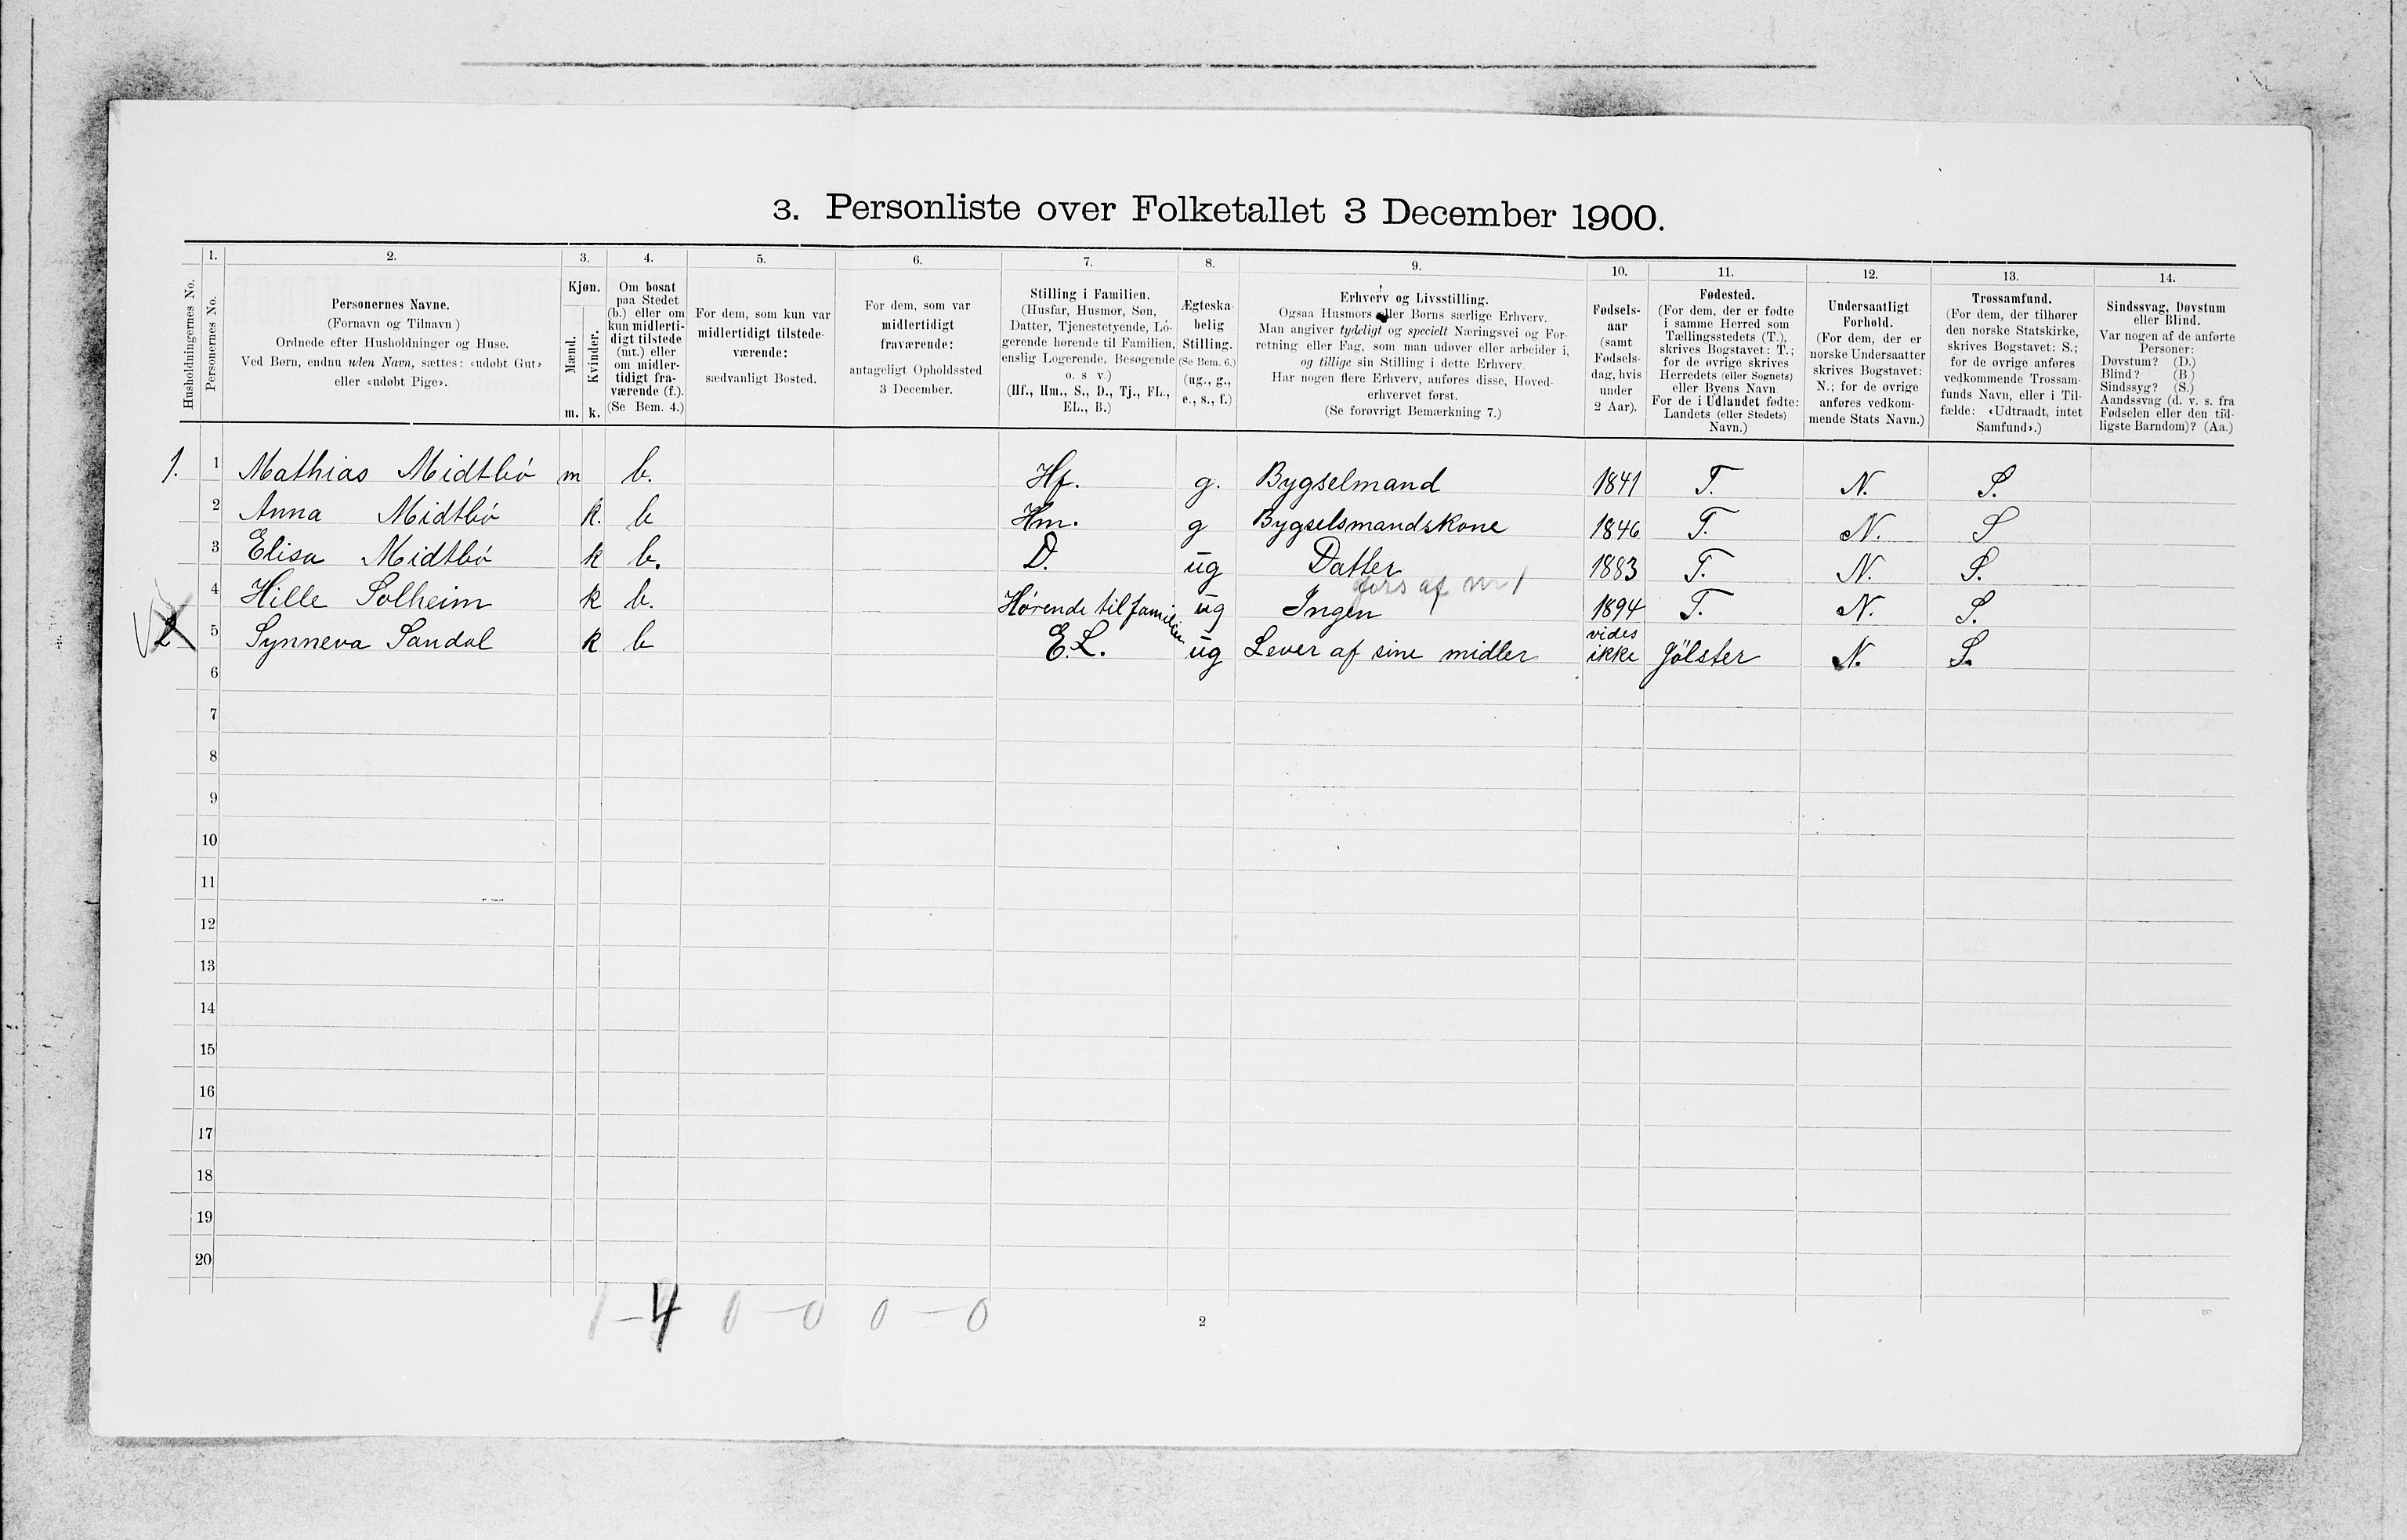 3. Personliste over Folketallet 3 December 1900.
1. 2. 3. 4. 5. 6. 7. 8. 9. 10. 11. 12. 13. 14.
Husholdningernes No.
Personernes No.
Personernes Navne.
(Fornavn og Tilnavn)
Ordnede efter Husholdninger og Huse.
Ved Børn, endnu uden Navn, sættes: «udøbt Gut»
eller «udøbt Pige».
Kjøn.
Mænd.
Kvinder.
m. k.
Om bosat
paa Stedet
(b.) eller om
kun midlerti-
digt tilstede
(mt.) eller
om midler-
tidigt fra-
værende (f.).
(Se Bem. 4.)
For dem, som kun var
midlertidigt tilstede-
værende:
sædvanligt Bosted.
For dem, som var
midlertidigt
fraværende:
antageligt Opholdssted
3 December.
Stilling i Familien.
(Husfar, Husmor, Søn,
Datter, Tjenestetyende, Lo-
gerende hørende til Familien,
enslig Logerende, Besøgende
o. s v.)
(Hf., Hm., S., D., Tj., FL.,
EL., B.)
Ægteska-
belig
Stilling.
(Se Bem. 6.)
(ug., g.,
e., s., f.)
Erhverv og Livsstilling.
Ogsaa Husmors eller Børns særlige Erhverv.
Man angiver tydeligt og specielt Næringsvei og For-
retning eller Fag, som man udøver eller arbeider i,
og tillige sin Stilling i dette Erhverv.
Har nogen flere Erhverv, anføres disse, Hoved-
erhvervet først.
(Se forøvrigt Bemærkning 7.)
Fødsels-
aar
(samt
Fødsels-
dag, hvis
under
2 Aar).
Fødested.
(For dem, der er fødte
i samme Herred som
Tællingsstedets (T.),
skrives Bogstavet: T.;
for de øvrige skrives
Herredets (eller Sognets)
eller Byens Navn
For de i Udlandet fødte:
Landets (eller Stedets)
Navn.)
Undersaatligt
Forhold.
(For dem, der er
norske Undersaatter
skrives Bogstavet:
N.; for de øvrige
anføres vedkom-
mende Stats Navn.)
Trossamfund.
(For dem, der tilhører
den norske Statskirke,
skrives Bogstavet: S.;
for de øvrige anføres
vedkommende Trossam-
funds Navn, eller i Til-
fælde: «Udtraadt, intet
Samfund».)
Sindssvag, Døvstum
eller Blind.
Var nogen af de anførte
Personer:
Døvstum? (D.)
Blind? (B.)
Sindssyg? (S.)
Aandssvag (d. v. s. fra
Fødselen eller den tid-
ligste Barndom)? (Aa.)
1. 1 Mathias Midtbö m b. Hf. g. Bygselmand 1841 T. N. S.
2 Anna Midtbö k. b Hm. g Bygselsmandskone 1846 T. N. S
3 Elisa Midtbö k b. D. ug Datter 1883 T. N. S.
fors af m 1
4 Hille Solheim k b. Hørende til familien ug Ingen 1894 T. N. S.
2 5 Synneva Sandal k b E.L. ug Lever af sine midler vides ikke Jölster N. S.
6
7
8
9
10
11
12
13
14
15
16
17
18
19
20
1 - 4 0 - 0 0 - 0
2